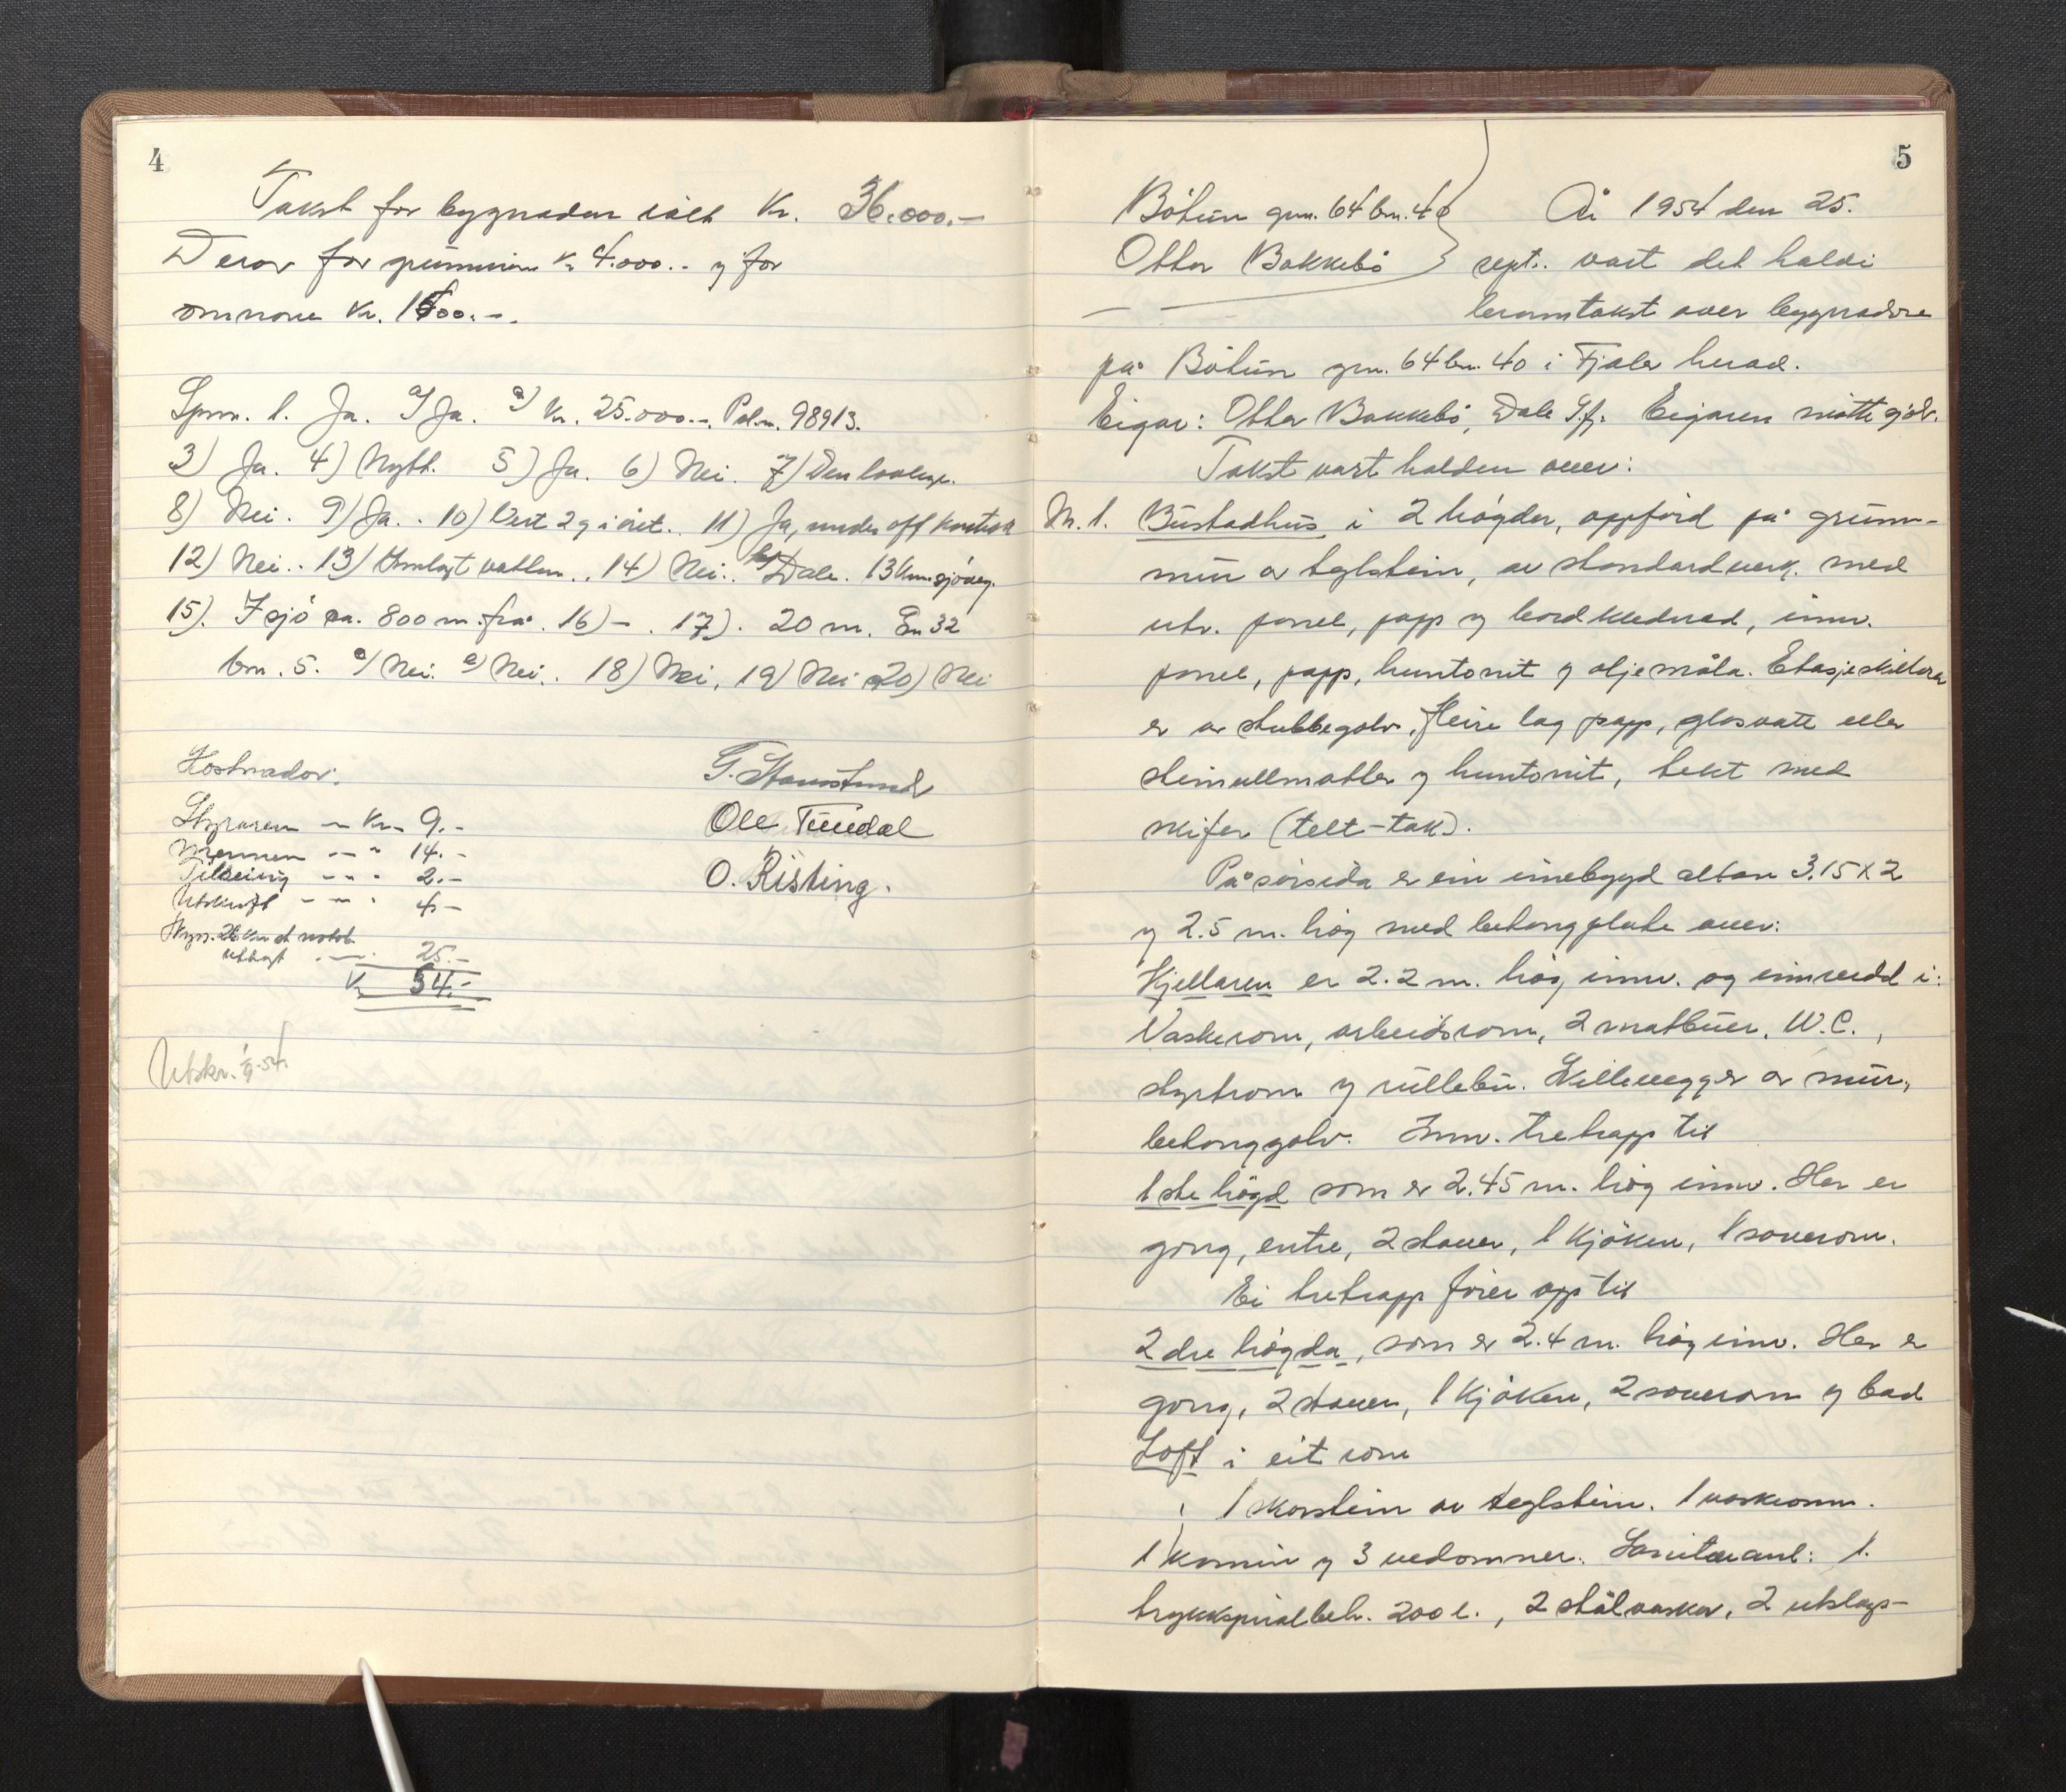 4
Takst for bygnaden ialt Kr. 36.000.-
Derav for grunnmur Kr 4.000.- og for
omnane Kr. 1500.-.
Spm. 1. Ja. a) Ja. a) Kr. 25.000.-. Pol.n. 98913.
3) Ja. 4) Nytt. 5) Ja. 6) Nei. 7) Den lovlege.
8) Nei. 9) Ja. 10) Vert 2 g i året. 11) Ja, under off kontroll
12) Nei. 13) Innlagt vatten. 14) Nei. b) Dale. 13 km. sjöveg.
15). I sjö ca. 800 m. frå. 16) - . 17). 20 m. Gn 32
bn. 5. a) Nei. a) Nei. 18) Nei, 19) Nei 20) Nei
Kostnader:
Styraren - Kr. 9.-
Mennene - " 14.-
Tilseiing - " 2.-
Utskrift - " 4.-
Skyss. 26 km at motob.
utlagt - 25.-
Kr 54.-
Utskr. 1/9-54.
Ole Tundal
O. Risting.
5
Bötun gnr. 64 bn. 40
Ottar Bakkebö
År 1954 den 25.
sept. vart det haldi
branntakst over bygnadene
på Bötun gnr. 64 bn. 40 i Fjaler herad.
Eigar: Ottar Bakkebö, Dale S.fj. Eigaren mötte sjölv.
Takst vart halden over:
N. 1. Bustadhus i 2 högder, oppförd på grunn-
mur av teglstein, av standardverk. med
utv. panel, papp og bordklednad, innv.
panel, papp, huntonit og oljemåla. Etasjeskillera
er av stubbegolv, fleire lag papp, glasvatt eller
steinullmatter og huntonit, tekt med
skifer (telt-tak).
På sörsida er ein innebygd altan 3.15 x 2
og 2.5 m. hög med betongplate over:
Kjellaren er 2.2 m. hög innv. og innreidd i:
Vaskerom, arbeidsrom, 2 matbuer, W.C.,
styrtrom og rullebu. Skilleveggar av mur,
betonggolv. Innv. tretrapp til
1ste högd som er 2.45 m. hög innv. Her er
gang, entre, 2 stover, 1 kjöken, 1 soverom.
Ei tretrapp förer opp til
2dre högda, som er 2.4 m. hög innv. Her er
gang, 2 stover, 1 kjöken, 2 soverom og bad
Loft i eit rom
1 skorstein av teglstein. 1 vaskeomn.
1 kamin og 3 vedomner. Sanitæranl: 1.
trykkspiralbeh. 200 l., 2 stålvasker, 2 utslags-